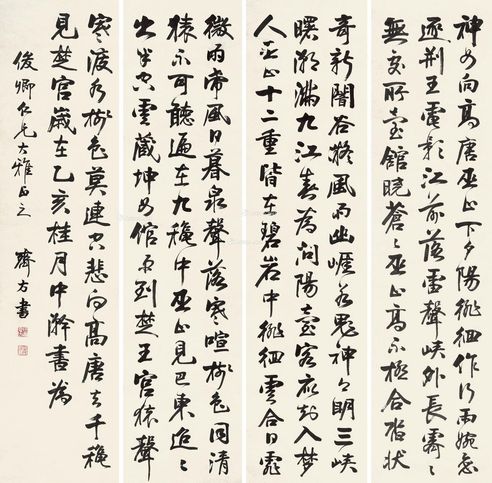 神女向高唐巫山下夕陽徘徊作行雨婉孌
逐荊王電影江前落雷聲峽外長霽雲
無處所臺館曉蒼蒼巫山高不極合沓狀
奇新闇谷疑風雨幽崖若鬼神月明三峽
曙潮滿九江春為問陽臺客應知入夢
人巫山十二重皆在碧岩中徘徊雲合日霏
微雨帶風日暮泉聲落寒喧樹色同清
猿不可聽遍在九秋中巫山見巴東迢迢
出半空雲藏神女館雨到楚王宮猿聲
寒渡水樹色莫連空悲向高唐去千秋
見楚宮歲在乙亥桂月中澣書為
俊卿仁兄大雅正之 方書